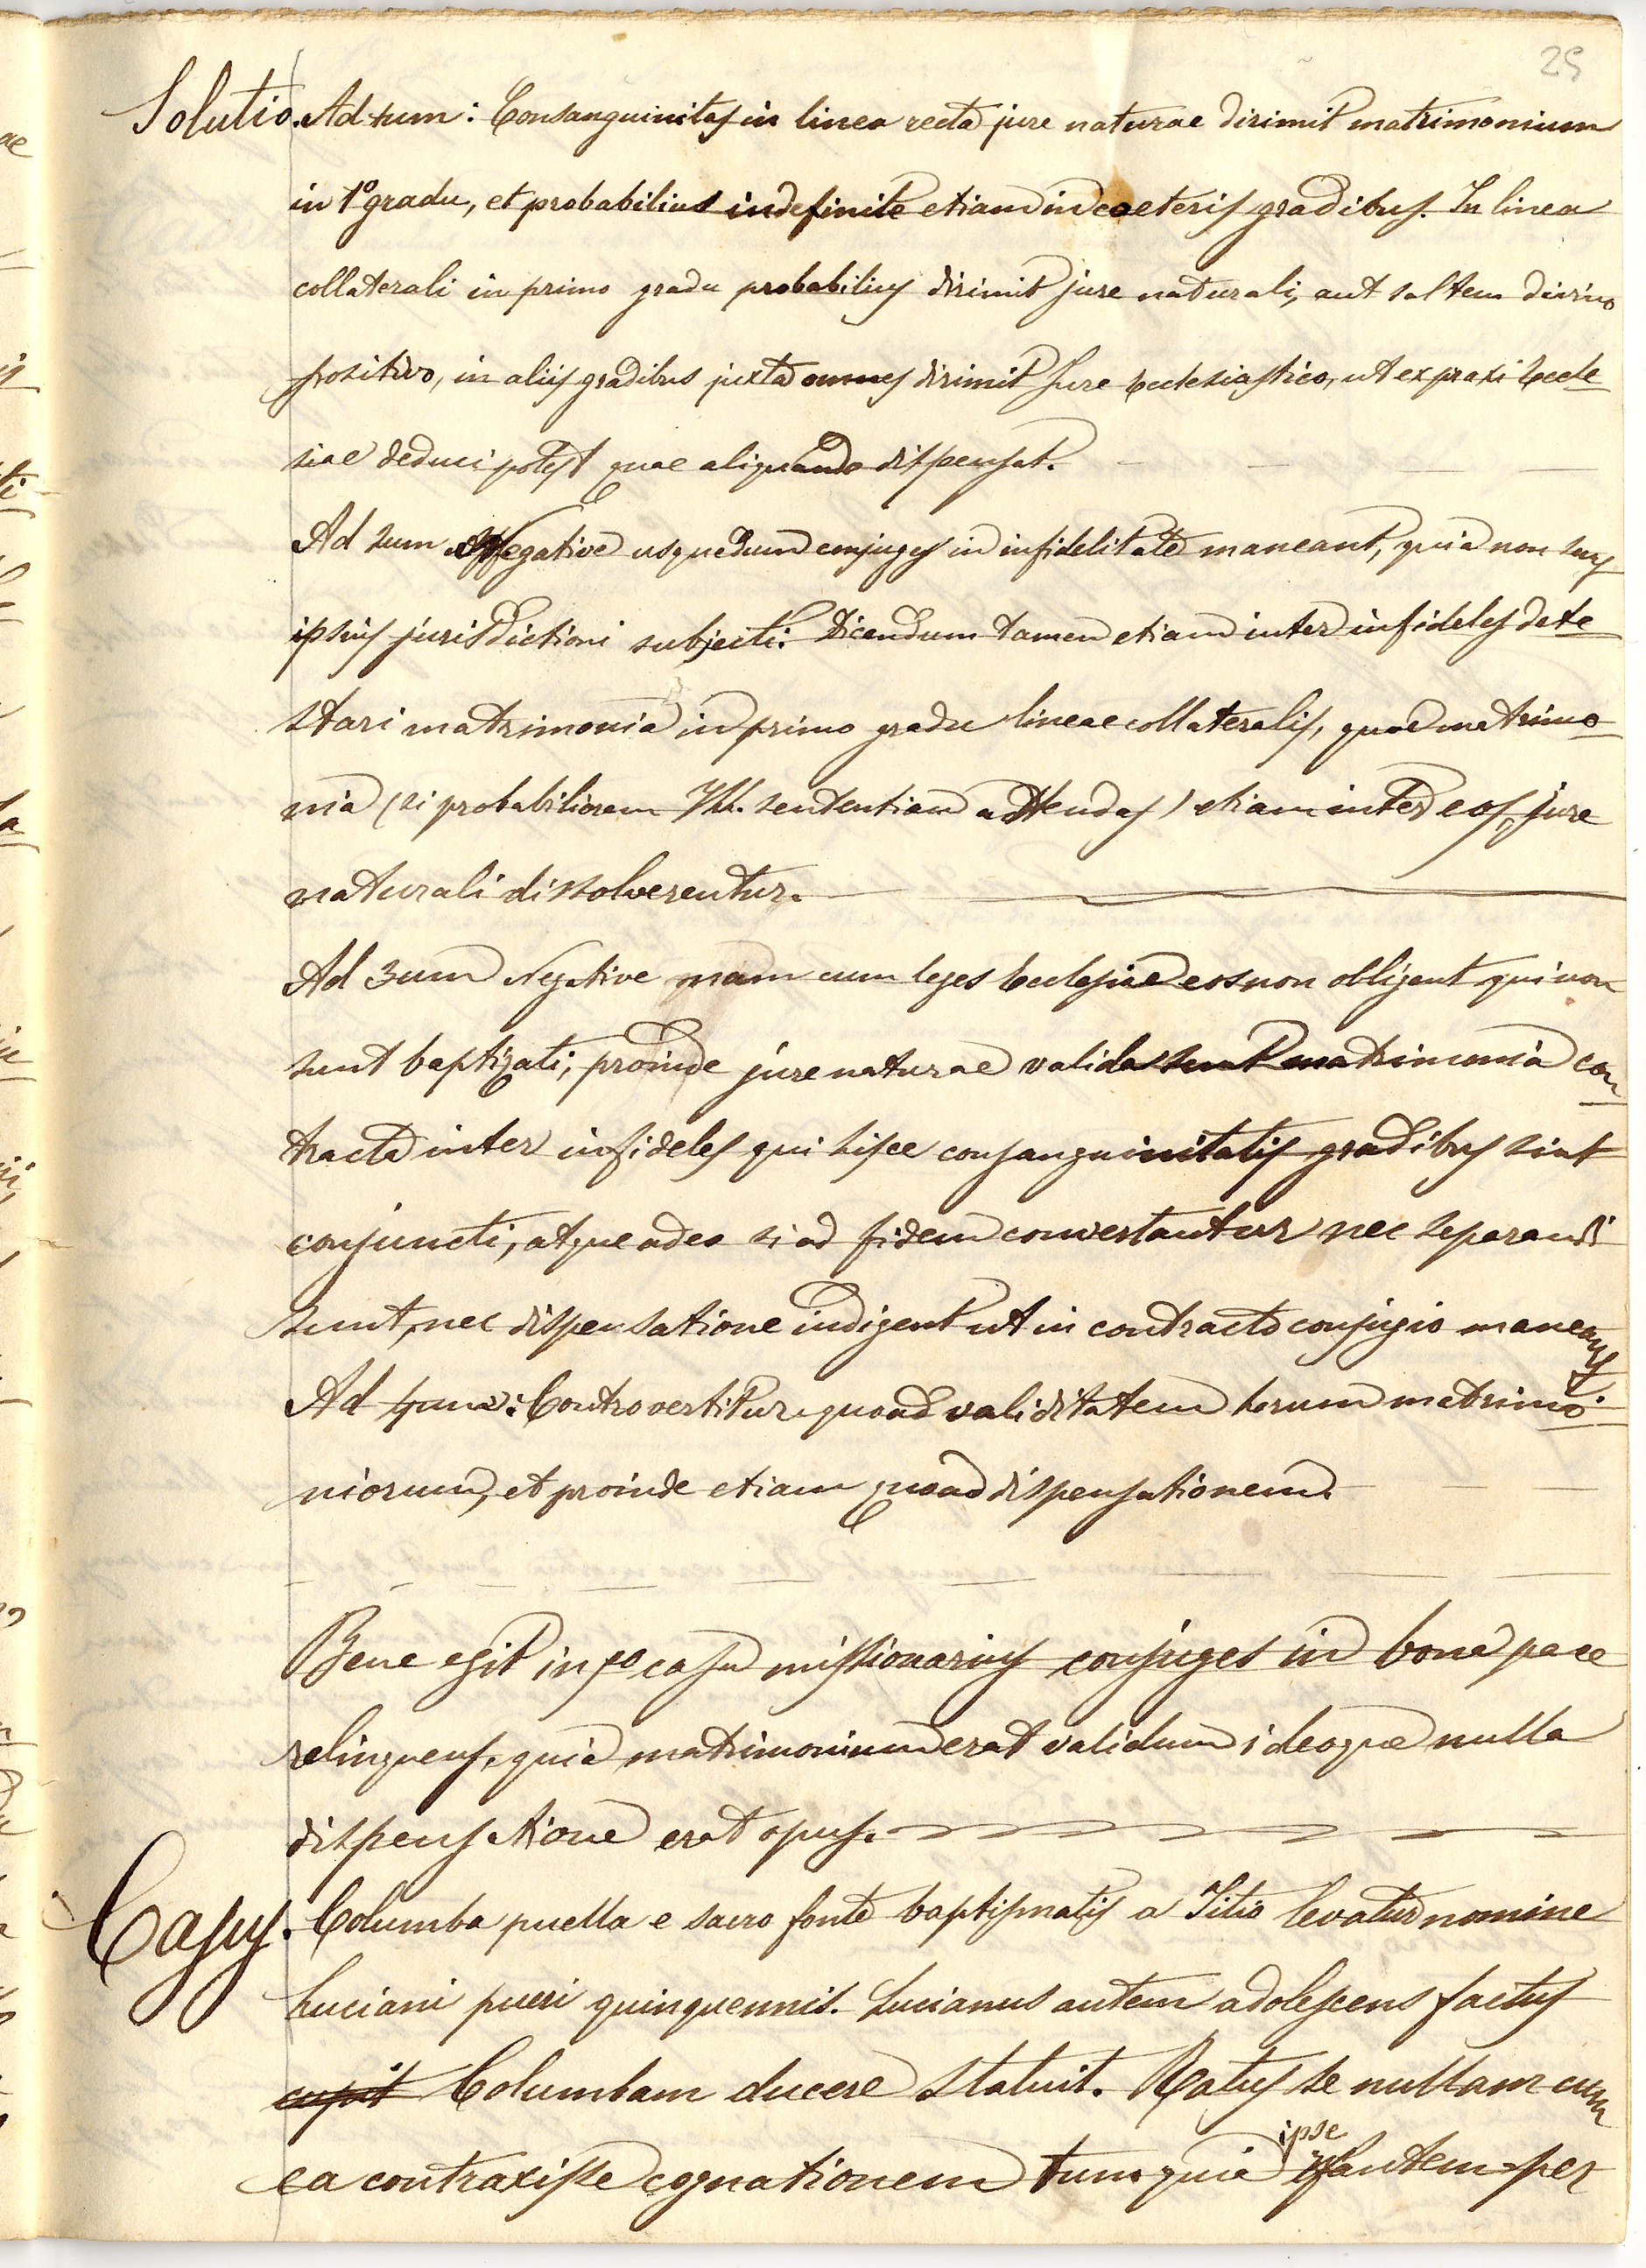 25
Solutio. Ad 1um: Consanguinitas in linea recta jure naturae dirimit matrimonium
in 1º gradu, et probabilius indefinite etiam in caeteris gradibus. In linea
collaterali in primo gradu probabilius dirimit jure naturali, aut saltem divino
positivo, in aliis gradibus juxta omnes dirimit Jure Ecclesiastico, ut ex praxi Eccle
siae deduci potest quae aliquando dispensat.
Ad 2um Negative usquedum conjuges in infidelitate maneant, quia non sunt
ipsius jurisdictioni subjecti. Dicendum tamen etiam inter infideles dete
stari matrimonia in primo gradu lineae collateralis, quae matrimo
nia (si probabiliorem Thl. sententiam attendas) etiam inter eos, jure
naturali dissolverentur.
Ad 3um Negative nam cum leges Ecclesiae eos non obligent qui non
sunt baptizati, proinde jure naturae valida sunt matrimonia con
tracta inter infideles qui hisce consanguinitatis gradibus sint
conjuncti, atque adeo si ad fidem convertantur nec separandi
sunt, nec dispensatione indigent ut in contracto conjugio maneant
Ad 4um: Controvertitur quoad validitatem horum matrimo
niorum, et proinde etiam quoad dispensationem.
Bene egit in casu missionarius conjuges in bona pace
relinquens, quia matrimonium erat validum ideoque nulla
dispensatione erat opus.
Casus. Columba puella e sacro fonte baptismatis a Titio levatur nomine
Luciani pueri quinquennis. Lucianus autem adolescens factus
cupit Columbam ducere statuit. Ratus se nullam cum
ea contraxisse cognationem tum quia ipse infantem per